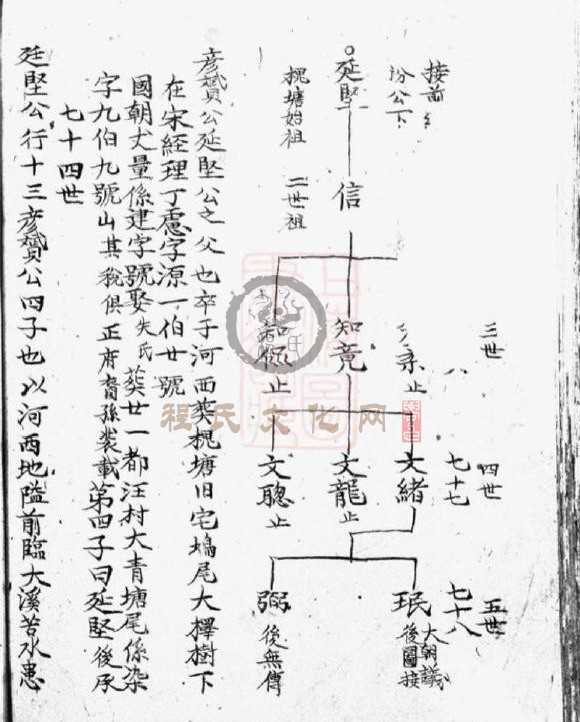 接前
汾公下
○延堅
槐塘始祖
信
二世祖
三世
知竟
止
四世
七十七
文緒
止
文龍
止
文聰
止
五世
七十八
珉
大朝議
後圖接
弼
後無傳
彥贇公延堅公之父也卒于河西葵槐塘旧宅塢尾大檡樹下
在宋經理丁慮字源一伯廿號
國朝丈量係建字號娶失氏葵廿一都汪村大青塘尾係染
字九伯九號山其稅俱正府裔孫裝載第四子曰延堅後承
七十四世
延堅公行十三彥贇公四子也以河西地隘前臨大溪苦水患
程氏文化网